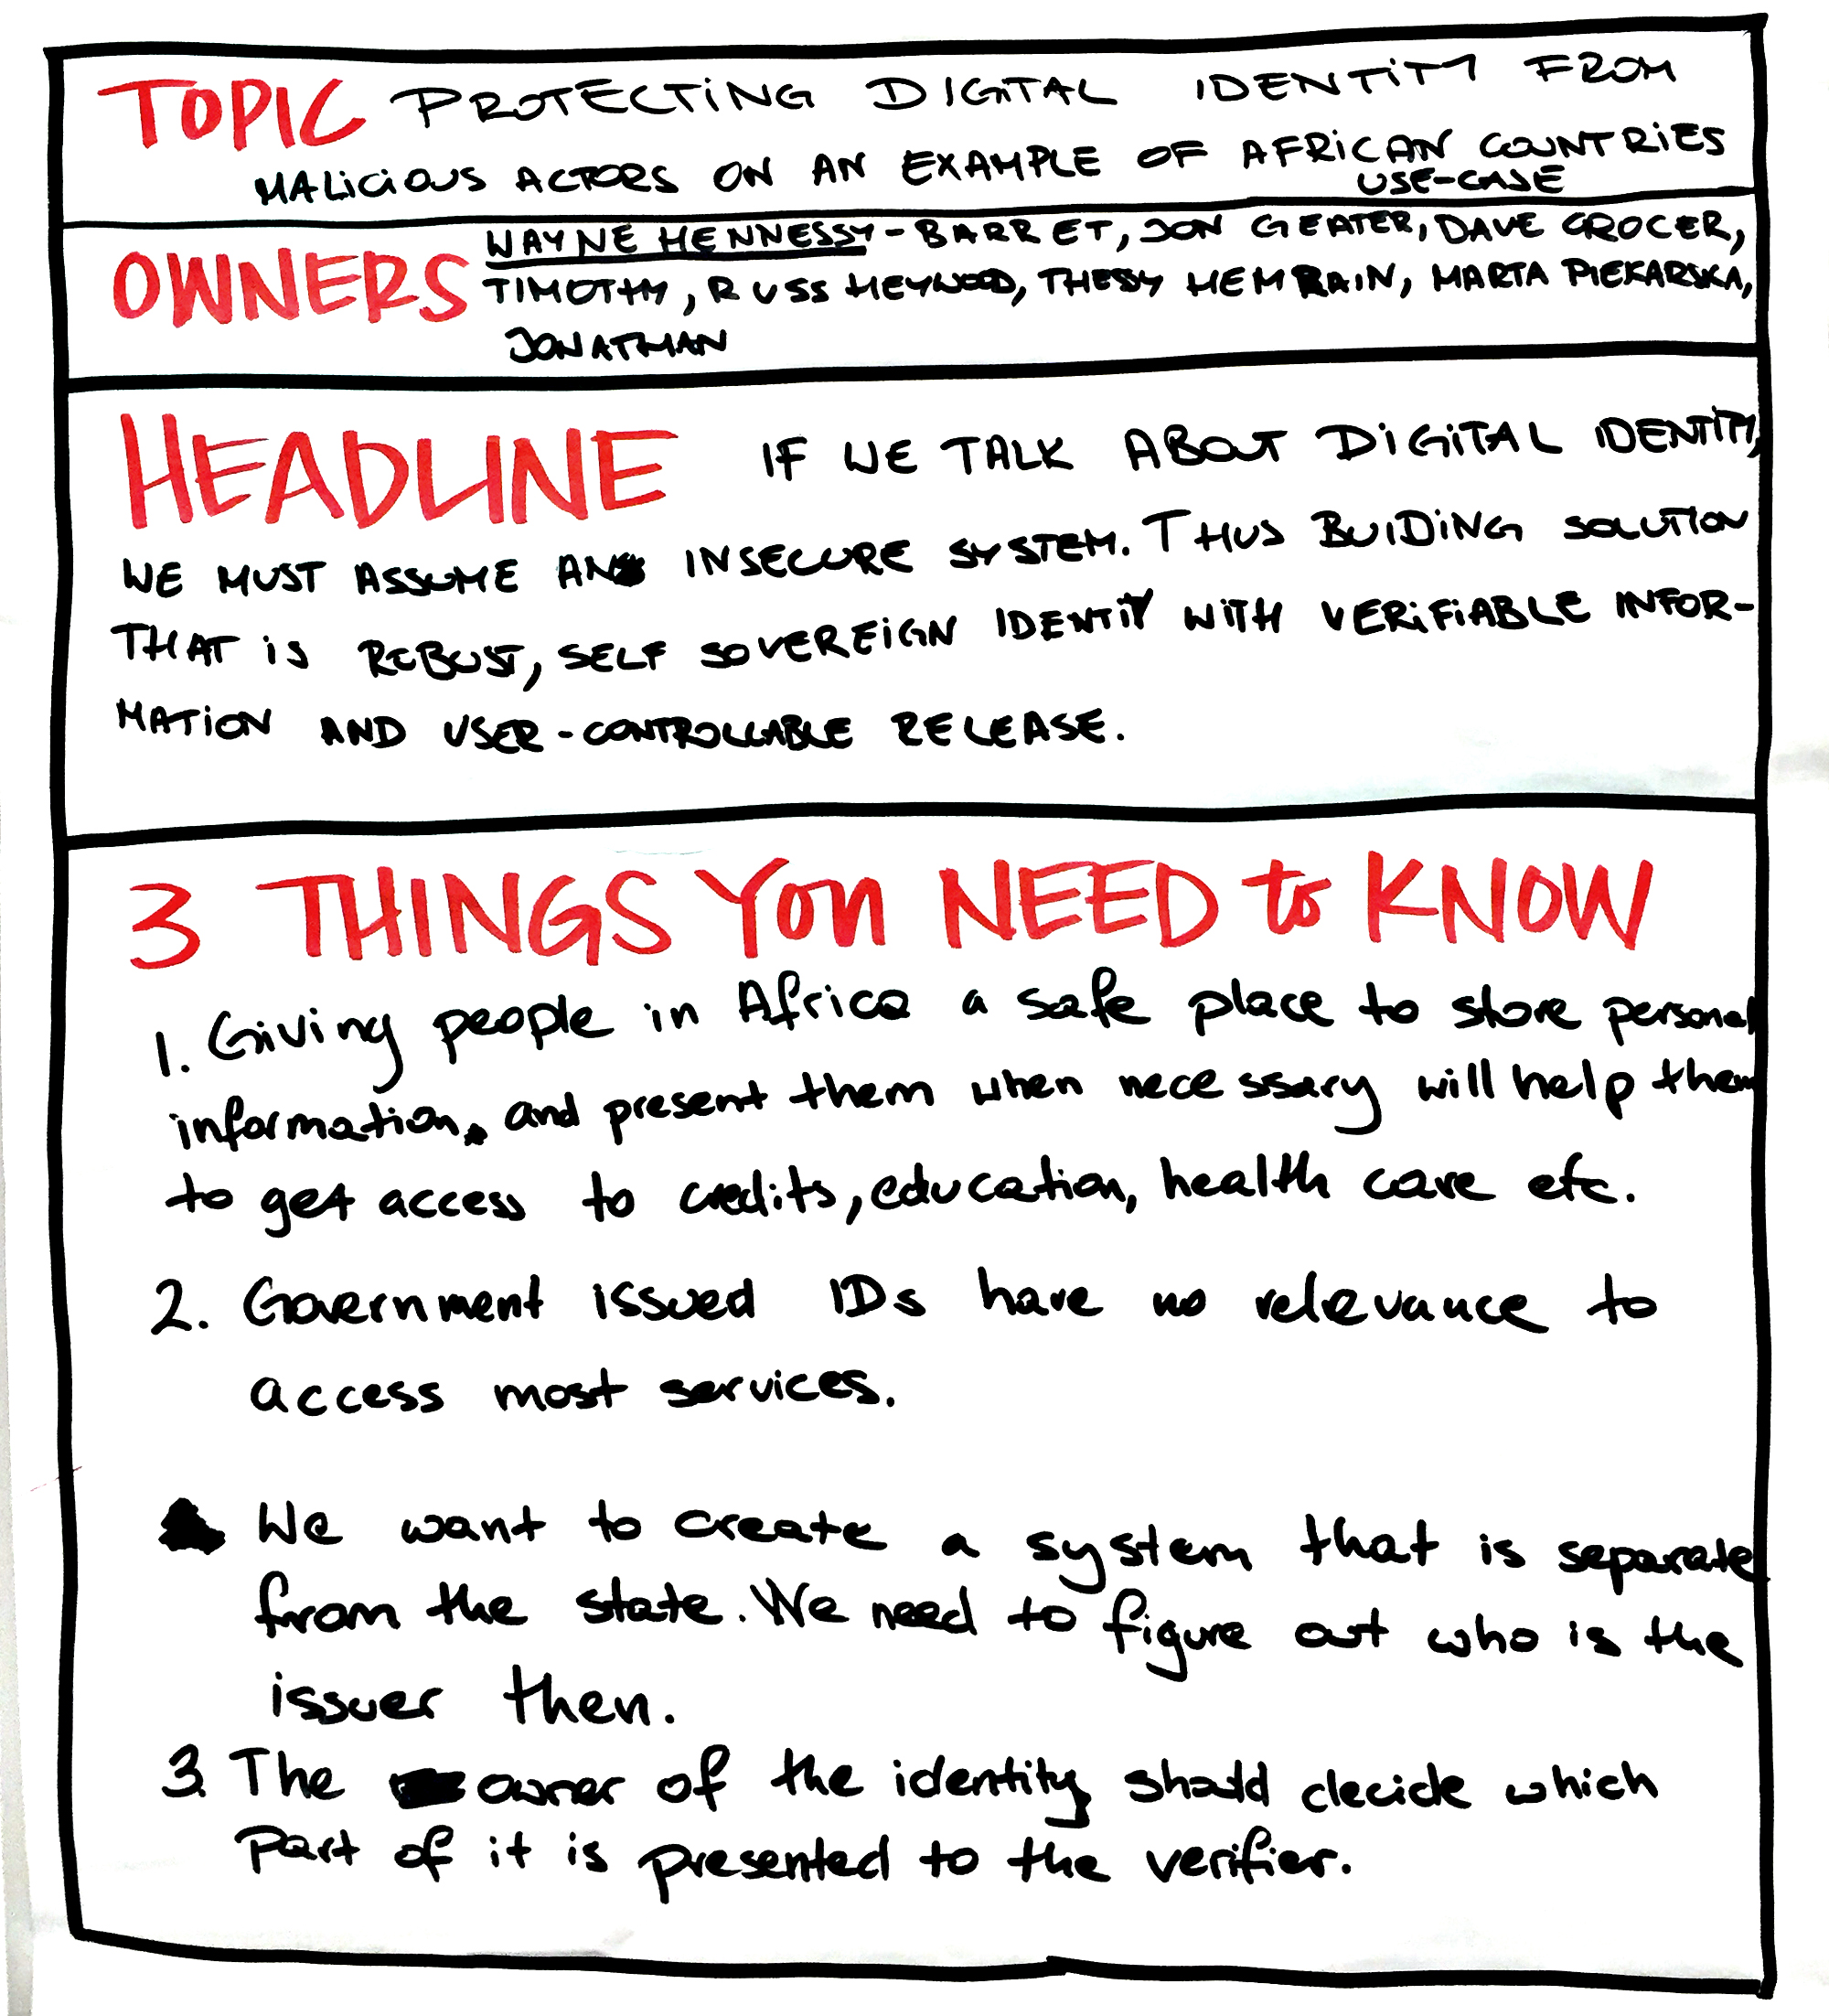 TOPIC PROTECTING DIGITAL IDENTITY FROM
MALICIOUS ACTORS ON AN EXAMPLE OF AFRICAN COUNTRIES
USE-CASE
OWNERS WAYNE HENNESSY-BARRET, JON GEATER, DAVE CROCER,
TIMOTHY, RUSS HEYWOOD, THESSY HEMRAIN, MARTA PIEKARSKA,
JONATHAN
HEADLINE IF WE TALK ABOUT DIGITAL IDENTITY,
WE MUST ASSUME AN INSECURE SYSTEM. THUS BUIDING SOLUTION
THAT IS ROBUST, SELF SOVEREIGN IDENTITY WITH VERIFIABLE INFOR-
MATION AND USER-CONTROLLABLE RELEASE.
3 THINGS YOU NEED to KNOW
1. Giving people in Africa a safe place to store personal
information, and present them when necessary will help them
to get access to credits, education, health care etc.
2. Government issued IDs have no relevance to
access most services.
We want to create a system that is separate
from the state. We need to figure out who is the
issuer then.
3. The owner of the identity should decide which
part of it is presented to the verifier.